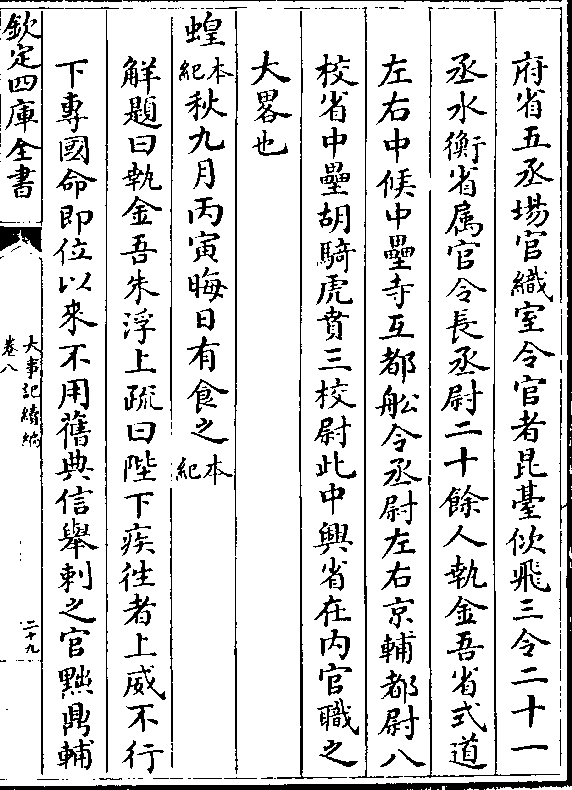 府省五丞場官織室令官者昆臺佽飛三令二十一
丞水衡省属官令長丞尉二十餘人執金吾省式道
左右中候中壘寺互都舩令丞尉左右京輔都尉八
校省中壘胡騎虎賁三校尉此中興省在内官職之
大畧也
蝗本紀秋九月丙寅晦日有食之本紀
解題曰執金吾朱浮上疏曰陛下疾徃者上威不行
下專國命即位以來不用舊典信舉刺之官黜鼎輔
欽定四庫全書
大事記續編
卷八
二十九